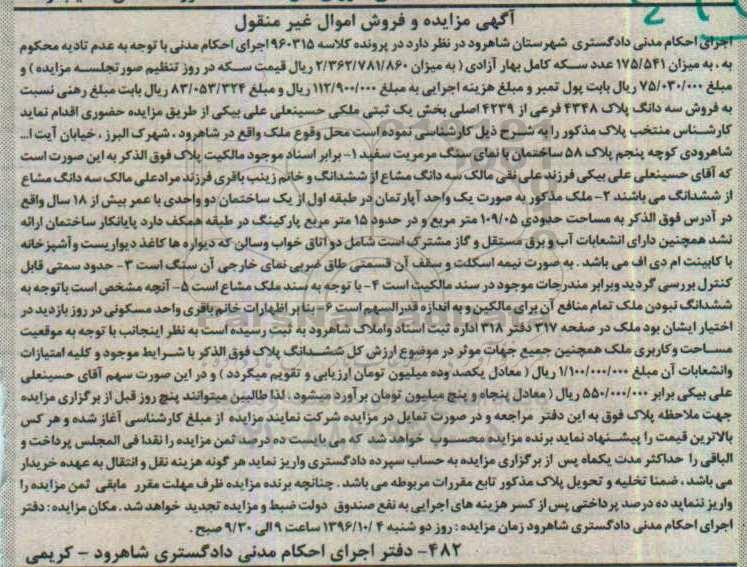 آگهی مزایده و فروش اموال غیر منقول
اجرای احکام مدنی دادگستری شهرستان شاهرود در نظر دارد در پرونده کلاسه ۹۶۰۳۱۵ اجرای احکام مدنی با توجه به عدم تادیه محکوم
به ، به میزان ۱۷۵/۵۴۱ عدد سکه کامل بهار آزادی ( به میزان ۲/۳۶۲/۷۸۱/۸۶۰ ریال قیمت سکه در روز تنظیم صورتجلسه مزایده ) و
مبلغ ۷۵/۰۳۰/۰۰۰ ریال بابت پول تمبر و مبلغ هزینه اجرایی به مبلغ ۱۱۲/۹۰۰/۰۰۰ ریال و مبلغ ۸۳/۰۵۳/۳۲۴ ریال بابت مبلغ رهنی نسبت
به فروش سه دانگ پلاک ۴۳۴۸ فرعی از ۴۲۳۹ اصلی بخش یک ثبتی ملکی حسینعلی علی بیکی از طریق مزایده حضوری اقدام نماید
کارشناس منتخب پلاک مذکور را به شرح ذیل کارشناسی نموده است محل وقوع ملک واقع در شاهرود ، شهرک البرز ، خیابان آیت ا...
شاهرودی کوچه پنجم پلاک ۵۸ ساختمان با نمای سنگ مرمریت سفید ۱- برابر اسناد موجود مالکیت پلاک فوق الذکر به این صورت است
که آقای حسینعلی علی بیکی فرزند علی نقی مالک سه دانگ مشاع از ششدانگ و خانم زینب باقری فرزند مرادعلی مالک سه دانگ مشاع
از ششدانگ می باشند ۲- ملک مذکور به صورت یک واحد آپارتمان در طبقه اول از یک ساختمان دو واحدی با عمر بیش از ۱۸ سال واقع
در آدرس فوق الذکر به مساحت حدودی ۱۰۹/۰۵ متر مربع و در حدود ۱۵ متر مربع پارکینگ در طبقه همکف دارد پایانکار ساختمان ارائه
نشد همچنین دارای انشعابات آب و برق مستقل و گاز مشترک است شامل دو اتاق خواب وسالن که دیواره ها کاغذ دیواریست وآشپزخانه
با کابینت ام دی اف می باشد . به صورت نیمه اسکلت و سقف آن قسمتی طاق ضربی نمای خارجی آن سنگ است ۳- حدود سمتی قابل
کنترل بررسی گردید وبرابر مندرجات موجود در سند مالکیت است ۴- با توجه به سند ملک مشاع است ۵- آنچه مشخص است باتوجه به
ششدانگ نبودن ملک تمام منافع آن برای مالکین و به اندازه قدرالسهم است ۶- بنا بر اظهارات خانم باقری واحد مسکونی در روز بازدید در
اختیار ایشان بود ملک در صفحه ۳۱۷ دفتر ۳۱۸ اداره ثبت اسناد واملاک شاهرود به ثبت رسیده است به نظر اینجانب با توجه به موقعیت
مساحت وکاربری ملک همچنین جمیع جهات موثر در موضوع ارزش کل ششدانگ پلاک فوق الذکر با شرایط موجود و کلیه امتیازات
وانشعابات آن مبلغ ۱/۱۰۰/۰۰۰/۰۰۰ ریال ( معادل یکصد وده میلیون تومان ارزیابی و تقویم میگردد ) و در این صورت سهم آقای حسینعلی
علی بیکی برابر ۵۵۰/۰۰۰/۰۰۰ ریال ( معادل پنجاه و پنج میلیون تومان برآورد میشود . لذا طالبین میتوانند پنج روز قبل از برگزاری مزایده
جهت ملاحظه پلاک فوق به این دفتر مراجعه و در صورت تمایل در مزایده شرکت نمایند مزایده از مبلغ کارشناسی آغاز شده و هر کس
بالاترین قیمت را پیشنهاد نماید برنده مزایده محسوب خواهد شد که می بایست ده درصد ثمن مزایده را نقدا فی المجلس پرداخت و
الباقی را حداکثر مدت یکماه پس از برگزاری مزایده به حساب سپرده دادگستری واریز نماید هر گونه هزینه نقل و انتقال به عهده خریدار
می باشد ، ضمنا تخلیه و تحویل پلاک مذکور تابع مقررات مربوطه می باشد . چنانچه برنده مزایده ظرف مهلت مقرر مابقی ثمن مزایده را
واریز ننماید ده درصد پرداختی پس از کسر هزینه های اجرایی به نفع صندوق دولت ضبط و مزایده تجدید خواهد شد . مکان مزایده : دفتر
اجرای احکام مدنی دادگستری شاهرود زمان مزایده : روز دو شنبه ۱۳۹۶/۱۰/۴ ساعت ۹ الی ۹/۳۰ صبح .
۴۸۲- دفتر اجرای احکام مدنی دادگستری شاهرود - کریمی